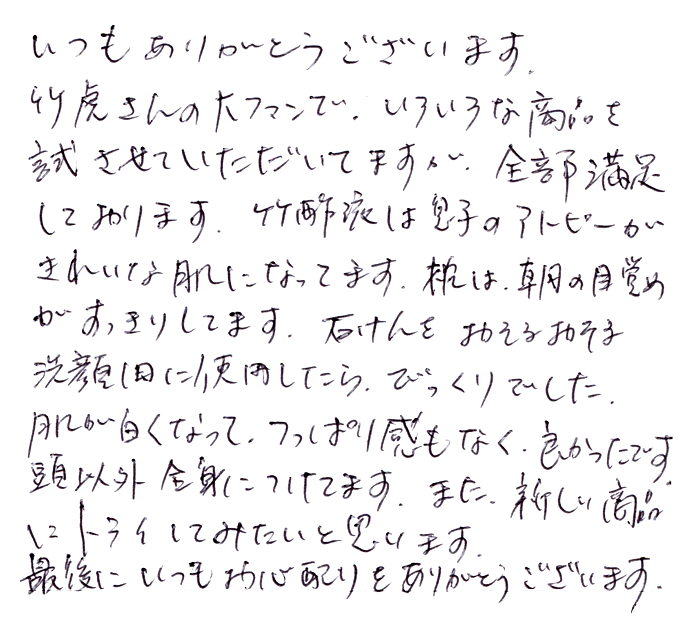 いつもありがとうございます。
竹虎さんの大ファンで、いろいろな商品を
試させていただいてますが、全部満足
しております。竹酢液は息子のアトピーが
きれいな肌になってます。枕は、朝の目覚め
がすっきりしてます。石けんをおそるおそる
洗顔用に使用したら、びっくりでした。
肌が白くなって、つっぱり感もなく、良かったです
頭以外全身につけてます。また、新しい商品
にトライしてみたいと思います。
最後にいつもお心配りをありがとうございます。